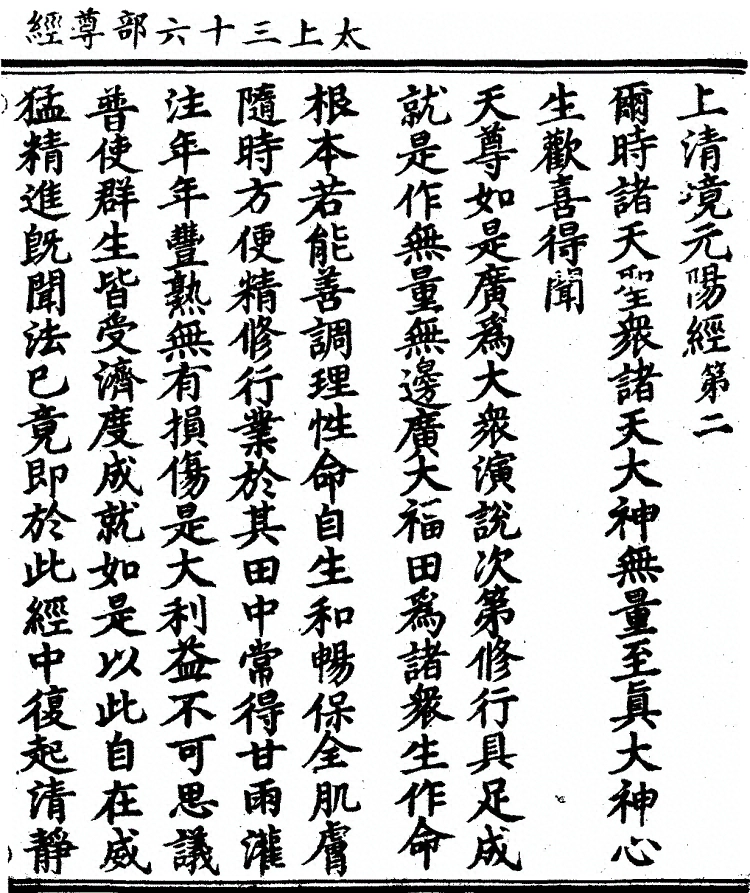 太上三十六部尊經
上清境元陽經第二
爾時諸天聖衆諸天大神無量至眞大神心
生歡喜得聞
天尊如是廣爲大衆演說次第修行具足成
就是作無量無邊廣大福田爲諸衆生作命
根本若能善調理性命自生和暢保全肌膚
隨時方便精修行業於其田中常得甘雨灌
注年年豐熟無有損傷是大利益不可思議
普使群生皆受濟度成就如是以此自在威
猛精進旣聞法已竟即於此經中復起清靜